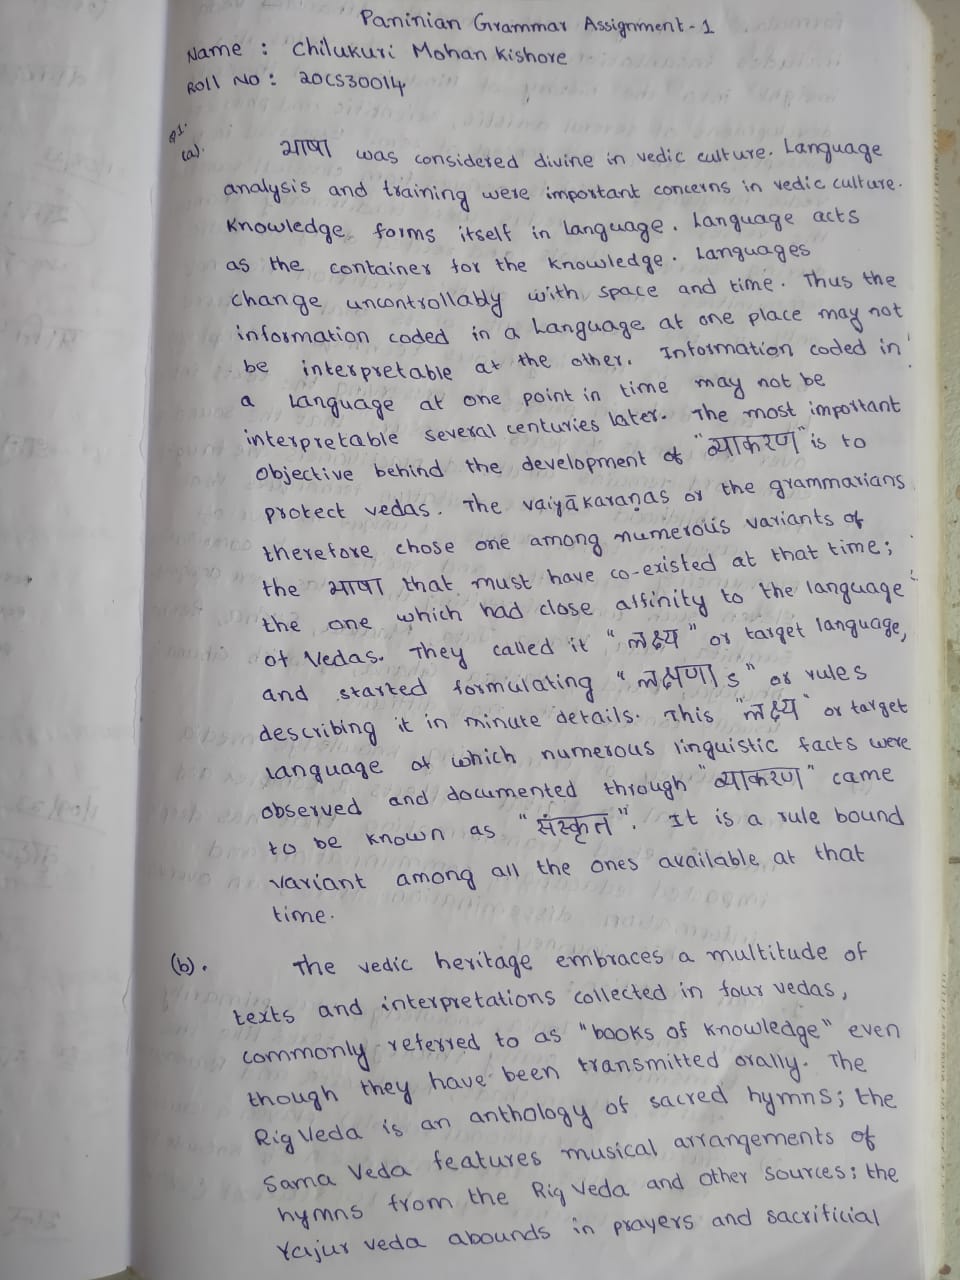 Paninian Grammar Assignment - 1
Name : Chilukuri Mohan Kishore
Roll No : 20CS30014
Q1.
(a). भाषा was considered divine in vedic culture. Language
analysis and training were important concerns in vedic culture.
Knowledge forms itself in language. Language acts
as the container for the knowledge. Languages
change uncontrollably with space and time. Thus the
information coded in a Language at one place may not
be interpretable at the other. Information coded in
a Language at one point in time may not be
interpretable several centuries later. The most important
objective behind the development of "व्याकरण" is to
protect vedas. The vaiyākaraṇas or the grammarians
therefore chose one among numerous variants of
the भाषा that must have co-existed at that time;
the one which had close affinity to the language
of Vedas. They called it "लक्ष्य" or target language,
and started formulating "लक्षणा s" or rules
describing it in minute details. This "लक्ष्य" or target
language of which numerous linguistic facts were
observed and documented through "व्याकरण" came
to be known as "संस्कृत". It is a rule bound
variant among all the ones available at that
time.
(b). The vedic heritage embraces a multitude of
texts and interpretations collected in four vedas,
commonly referred to as "books of knowledge" even
though they have been transmitted orally. The
Rig Veda is an anthology of sacred hymns; the
Sama Veda features musical arrangements of
hymns from the Rig Veda and other sources; the
Yajur veda abounds in prayers and sacrificial